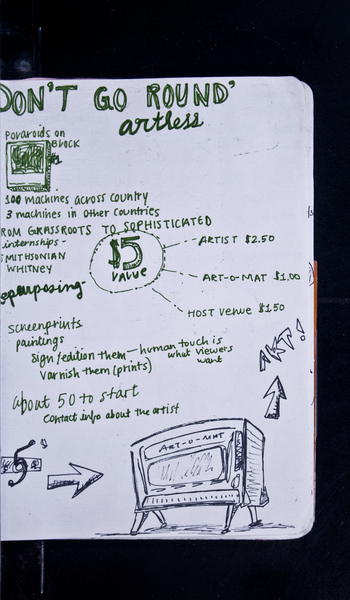 DON'T GO ROUND'
artless
POLAROIDS on
BLOCK
100 machines across country
3 machines in other countries
FROM GRASSROOTS TO SOPHISTICATED
internships -
SMITHSONIAN
WHITNEY
$5
VALUE
ARTIST $2.50
ART-O-MAT $1.00
HOST Venue $1.50
repurposing
screenprints
paintings
sign/edition them — human touch is
what viewers
want
varnish them (prints)
about 50 to start
contact info about the artist
ART!
ART-O-MAT
5